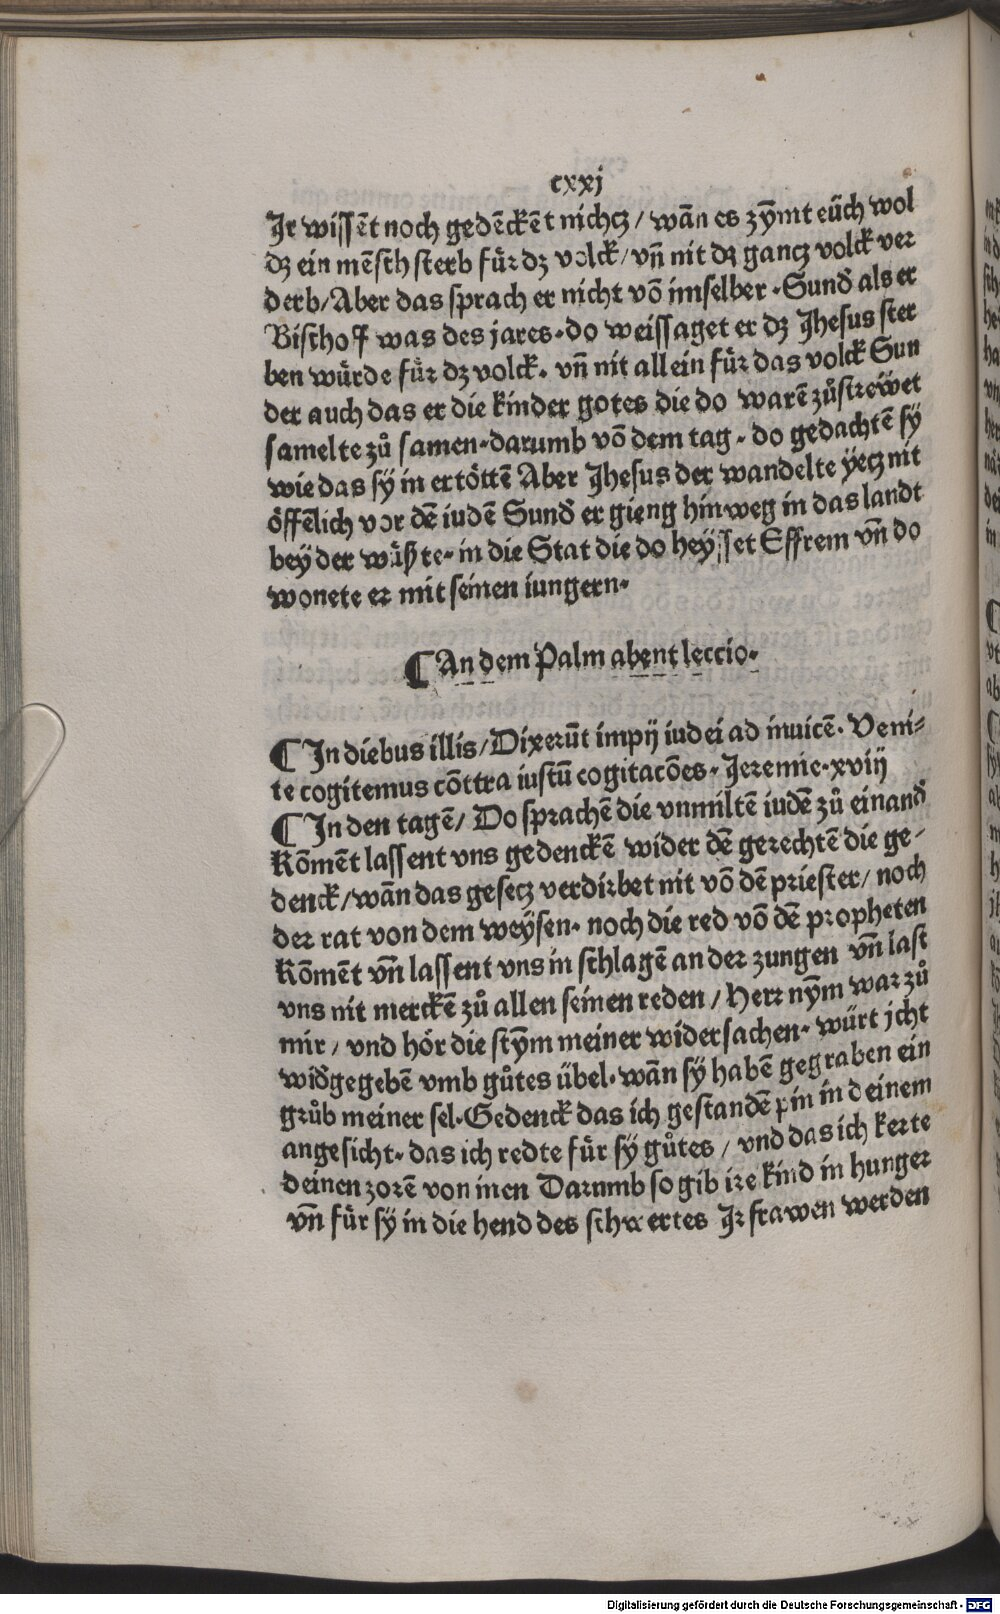 cxxj
Jr wissēt noch gedēckēt nichcz / wān es zȳmt eüch wol
dz ein mēsch sterb für dz volck / vn̄ nit dz gancz volck ver
derb / Aber das sprach er nicht vō imselber · Sund̄ als er
Bischof was des jares · do weissaget er dz Jhesus ster
ben würde für dz volck · vn̄ nit allein für das volck Sun
der auch das er die kinder gotes die do warē zůstreẅet
samelte zů samen · darumb vō dem tag · do gedachtē sÿ
wie das sÿ in ertöttē Aber Jhesus der wandelte ÿecz nit
öffēlich vor dē iudē Sund̄ er gieng hinweg in das landt
beÿ der wüßte · in die Stat die do heÿsset Effrem vn̄ do
wonete er mit seinen iungern ·
¶ An dem Palm abent leccio ·
¶ In diebus illis / Dixerūt impij iudei ad inuicē · Veni⸗
te cogitemus cōttra iustū cogitacōes · Jeremie · xviij
¶ In den tagē / Do sprachē die vnmiltē iudē zů einand̄
Kōmēt lassent vns gedenckē wider dē gerechtē die ge⸗
denck / wān das gesecz verdirbet nit vō dē priester / noch
der rat von dem weÿsen · noch die red vō dē propheten
Kōmēt vn̄ lassent vns in schlagē an der zungen vn̄ last
vns nit merckē zů allen seinen reden / Herr nȳm war zů
mir / vnd hör die stȳm meiner widersachen · würt jcht
wid̄gegebē vmb gůtes übel · wān sÿ habē gegraben ein
grůb meiner sel · Gedenck das ich gestandē pin in deinem
angesicht · das ich redte für sÿ gůtes / vnd das ich kerte
deinen zorē von inen Darumb so gib ire kind in hunger
vn̄ für sÿ in die hend des schwertes Jr frawen werden
Digitalisierung gefördert durch die Deutsche Forschungsgemeinschaft - DFG